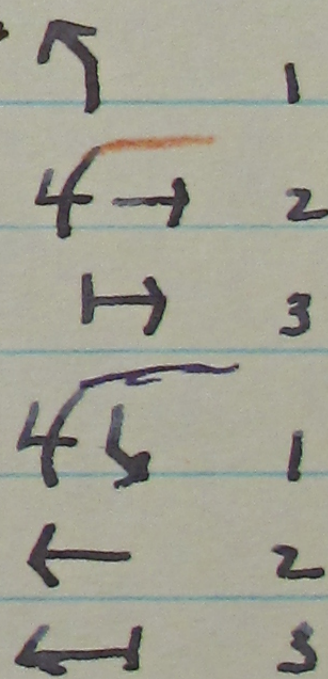 ↰ 1
4 → 2
↦ 3
4 ↳ 1
← 2
↤ 3